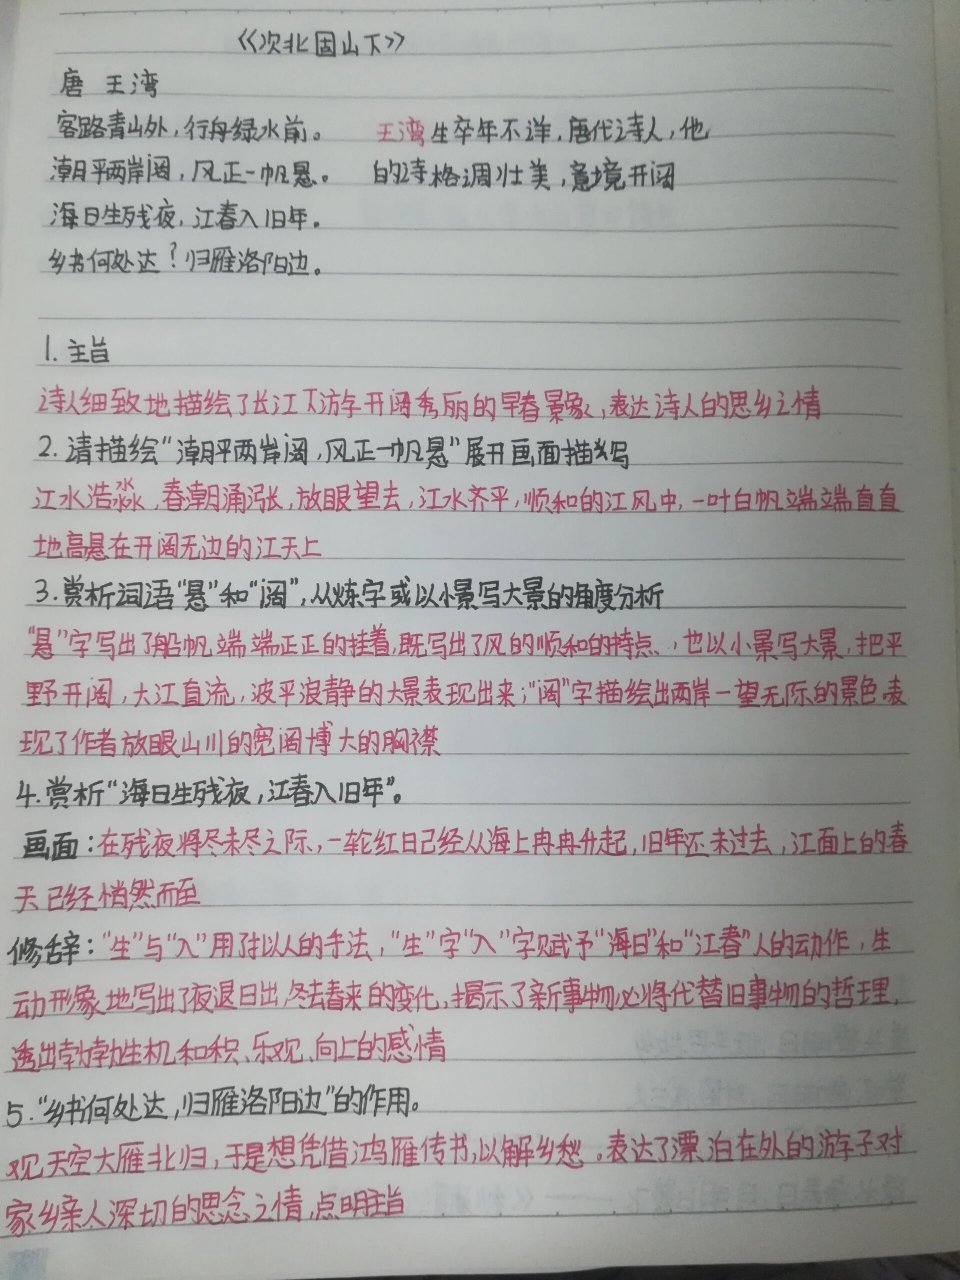 《次北固山下》
唐 王湾
客路青山外，行舟绿水前。 王湾生卒年不详，唐代诗人，他
潮平两岸阔，风正一帆悬。 的诗格调壮美，意境开阔
海日生残夜，江春入旧年。
乡书何处达？归雁洛阳边。
1. 主旨
诗人细致地描绘了长江下游开阔秀丽的早春景象，表达诗人的思乡之情
2. 请描绘“潮平两岸阔，风正一帆悬”展开画面描写
江水浩淼，春潮涌涨，放眼望去，江水齐平，顺和的江风中，一叶白帆端端直直
地高悬在开阔无边的江天上
3. 赏析词语“悬”和“阔”，从炼字或以小景写大景的角度分析
“悬”字写出了船帆端端正正的挂着，既写出了风的顺和的特点、，也以小景写大景，把平
野开阔，大江直流，波平浪静的大景表现出来；“阔”字描绘出两岸一望无际的景色表
现了作者放眼山川的宽阔博大的胸襟
4. 赏析“海日生残夜，江春入旧年”。
画面：在残夜将尽未尽之际，一轮红日已经从海上冉冉升起，旧年还未过去，江面上的春
天已经悄然而至
修辞：“生”与“入”用了拟人的手法，“生”字“入”字赋予“海日”和“江春”人的动作，生
动形象地写出了夜退日出，冬去春来的变化，揭示了新事物必将代替旧事物的哲理，
透出勃勃生机和积、乐观、向上的感情
5. “乡书何处达，归雁洛阳边”的作用。
观天空大雁北归，于是想凭借鸿雁传书，以解乡愁。表达了漂泊在外的游子对
家乡亲人深切的思念之情，点明主旨